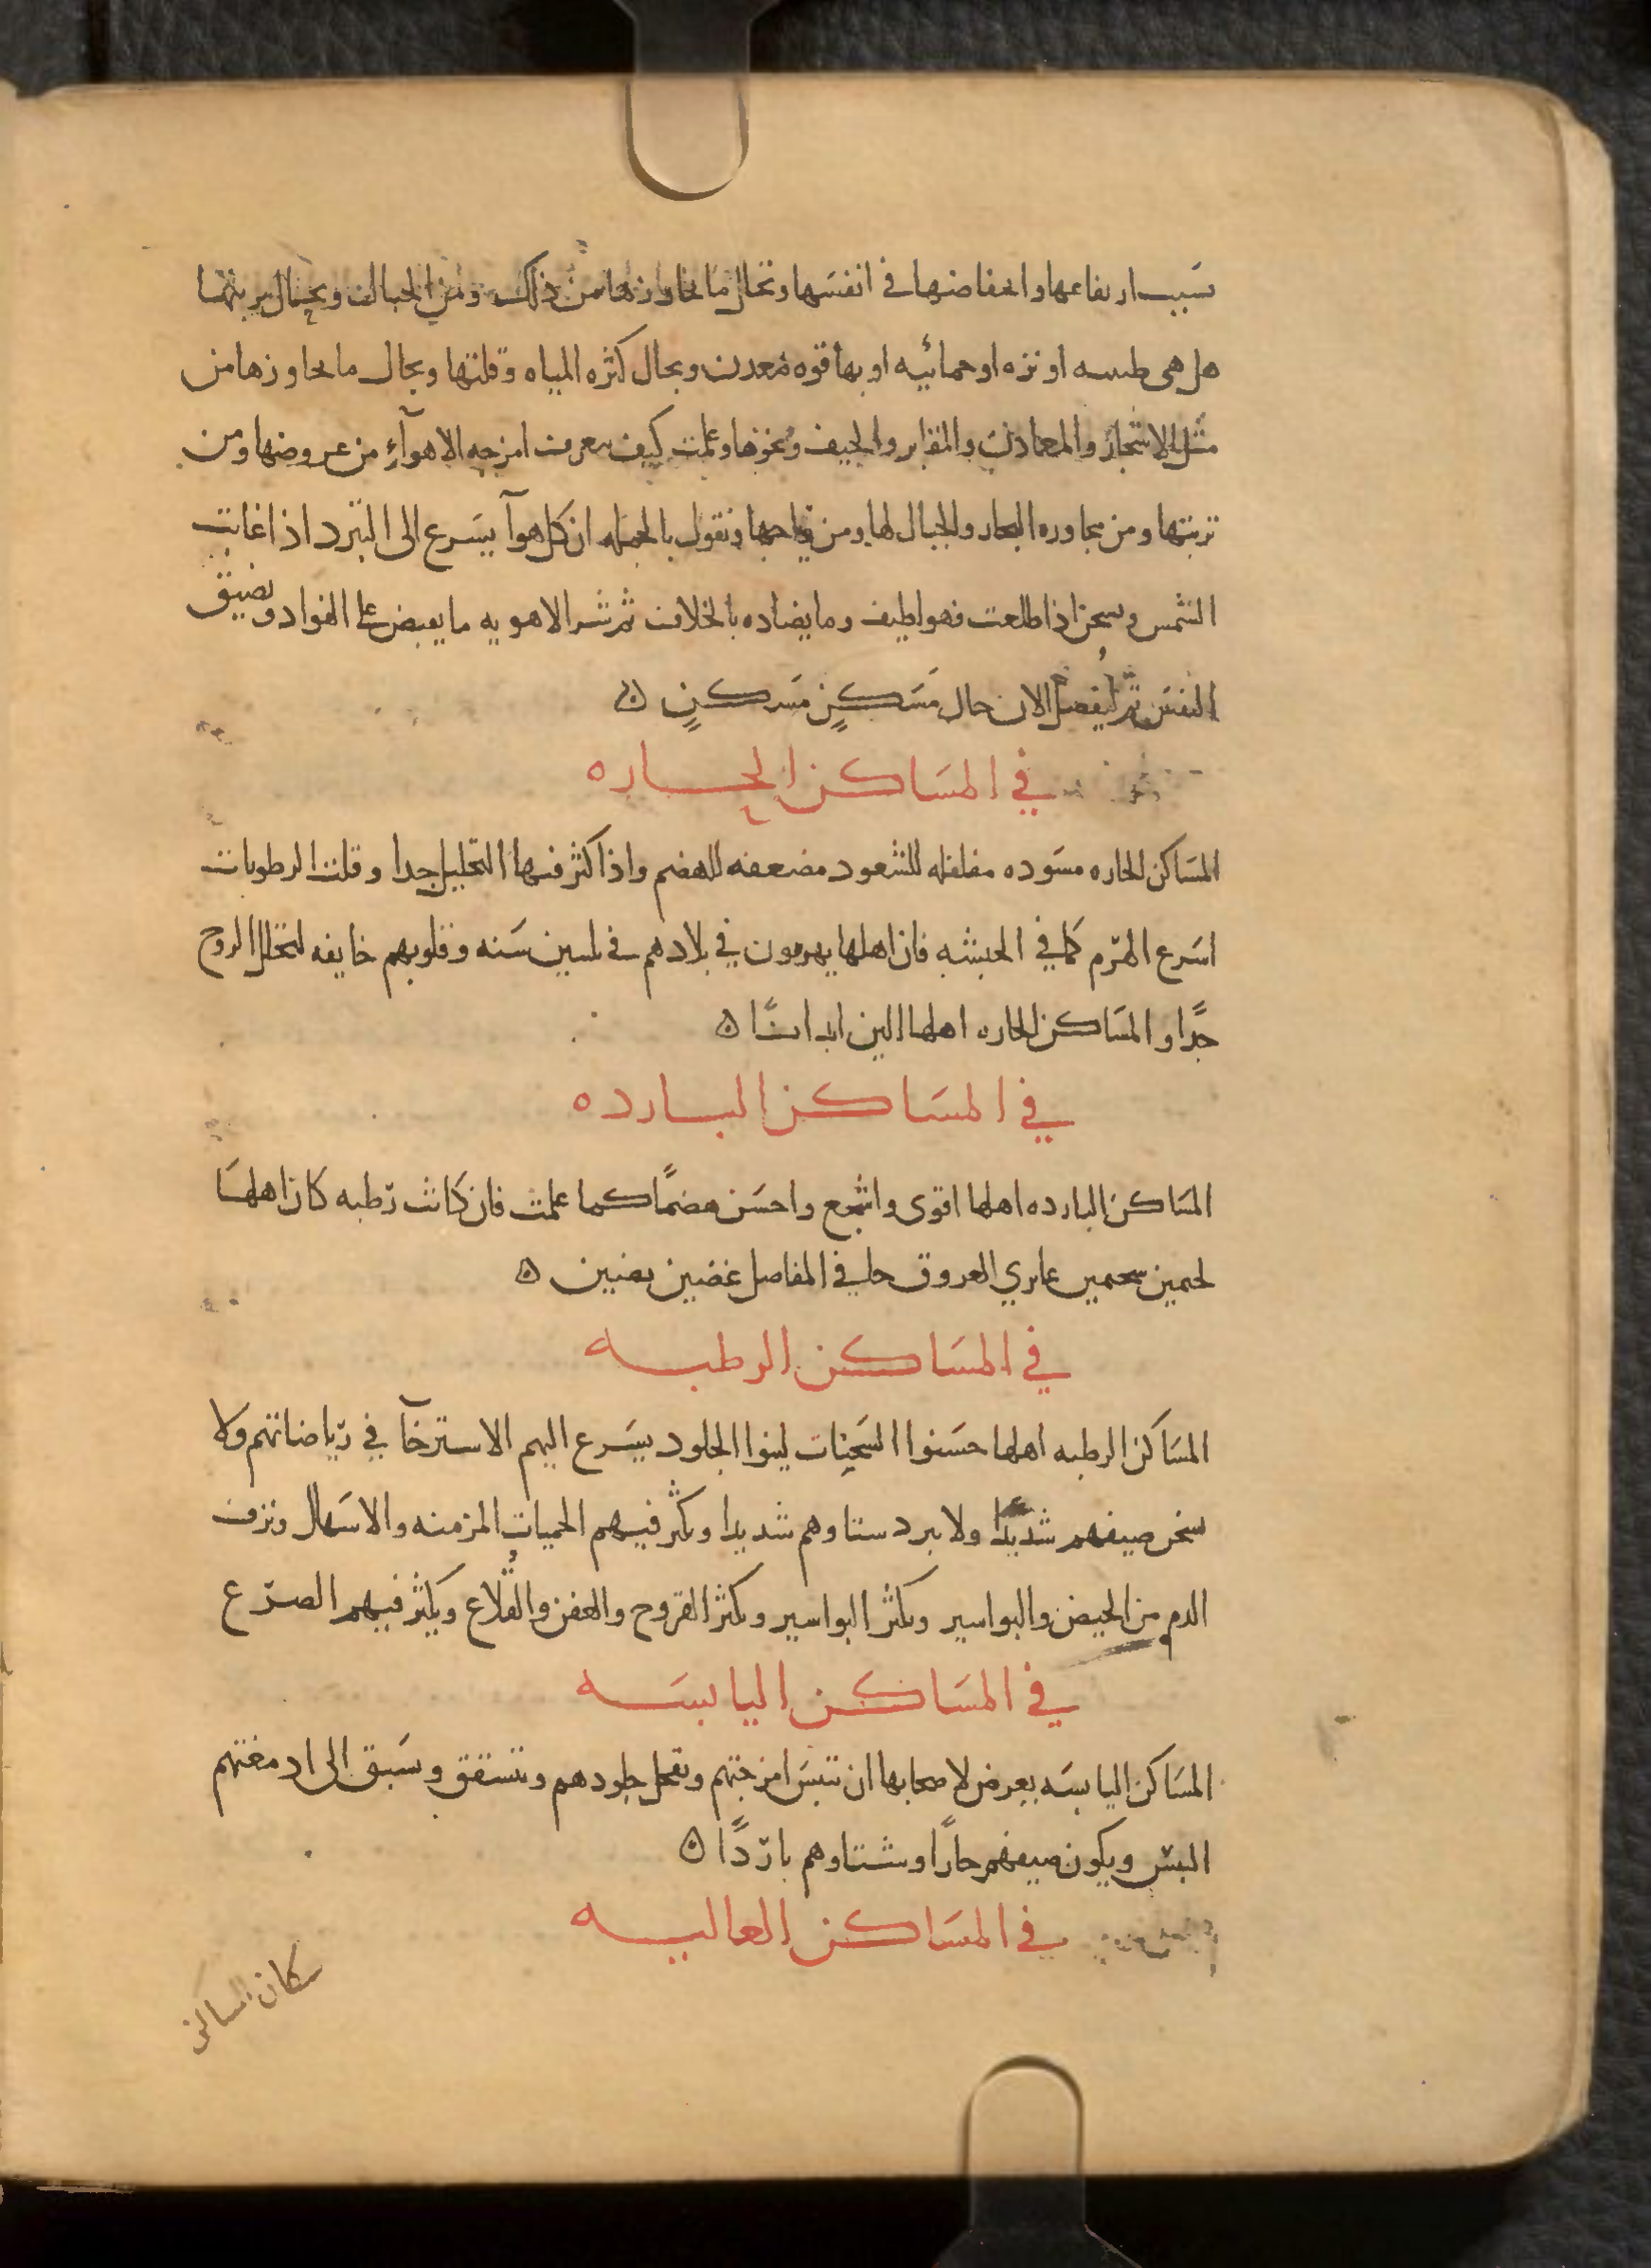 سبب ارتفاعها وانخفاضها في انفسها وبحال ما يجاورها من ذلك ومن الجبال وبحال تربتها
هل هي طينيه او نزه او حمائيه او بها قوه معدن وبحال كثره المياه وقلتها وبحال ما يجاورها من
مثل الاشجار والمعادن والمقابر والجيف ونحوها وعلمت كيف يتعرف امزجه الاهوآء من عروضها ومن
تربتها ومن مجاوره البحار والجبال لها ومن رياحها ونقول بالجمله ان كل هوآ يسرع الى التبرد اذا غابت
الشمس ويسخن اذا طلعت فهو لطيف وما يضاده بالخلاف ثم شر الاهويه ما يقبض على الفواد ويضيق
النفس ثم لنفصل الان حال مَسكنٍ مَسكنٍ ۞
في المسَاكن الحاره
المسَاكن الحاره مسَوده مفلفله للشعور مضعفه للهضم واذا كثر فيها التحليل جدا وقلت الرطوبات
اسَرع الهرم كما في الحبشه فان اهلها يهرمون في بلادهم في ثلثين سَنه وقلوبهم خايفه لتحلل الروح
جدًا والمسَاكن الحاره اهلها الين ابدانًا ۞
في المسَاكن البارده
المسَاكن البارده اهلها اقوى واشجع واحسَن هضمًا كما علمت فان كانت رطبه كان اهلها
لحمين شحمين غايري العروق جافي المفاصل غضين بضين ۞
في المسَاكن الرطبه
المسَاكن الرطبه اهلها حسَنوا السَحنات لينوا الجلود يسَرع اليهم الاسترخآ في رياضاتهم ولا
يسخن صيفهم شديدًا ولا يبرد شتاوهم شديدا ويكثر فيهم الحميات المزمنه والاسَهال ونزف
الدم من الحيض والبواسير ويكثر البواسير ويكثر القروح والعفن والقُلاع ويكثر فيهم الصرع
في المسَاكن اليابسَه
المسَاكن اليابسَه يعرض لاصحابها ان تيبسَ امزجتهم وتقحل جلودهم وتتشقق ويسَبق الى ادمغتهم
اليبس ويكون صيفهم حارًا وشتاوهم باردًا ۞
في المسَاكن العاليه
سكان المساكن